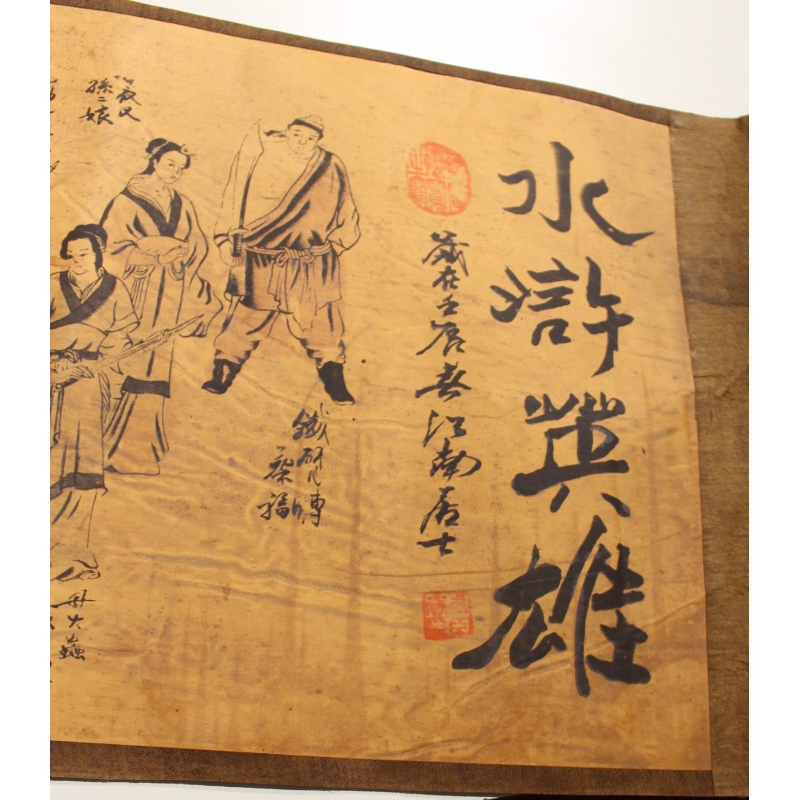 水滸英雄
歲在壬辰春江南居士
鐵臂膊
蔡福
母夜叉
孫二娘
母大蟲